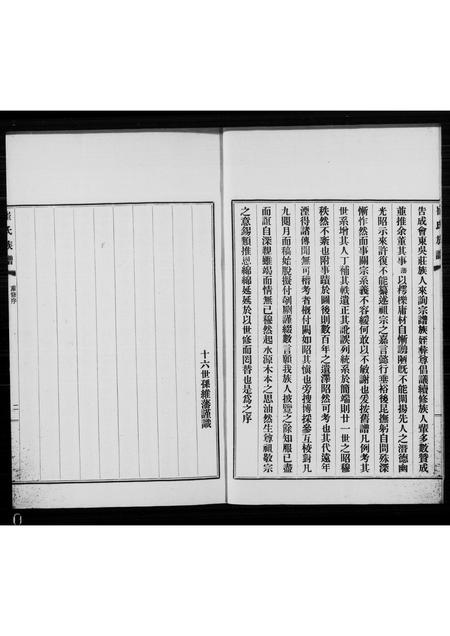 告成會東吳莊族人來詢宗譜族姪彝尊倡議續修族人輩多數贊成
並推余董其事藩以樗櫟庸材自慚鶲陋旣不能闡揚先人之潛德幽
光昭示來許復不能纂述祖宗之嘉言懿行垂裕後昆撫躬自問殊深
慚怍然而事關宗系義不容緩何敢以不敏謝也爰按舊譜凡例考其
世系增其人丁補其軼遺正其訛誤列統系於簡端則廿一世之昭穆
秩然不紊也附事蹟於圖後則數百年之遺澤昭然可考也其代遠年
湮得諸傳聞無可稽考者概付闕如昭其慎也旁搜博採參互校對凡
九閱月而稿始脫擬付剞劂謹綴數言願我族人披覽之餘知服已盡
而誼自深親雖竭而情無已穆然起水源木本之思油然生尊祖敬宗
之意錫類推恩綿綿延延於以世修而罔替也是爲之序
十六世孫維藩謹識
崔氏族譜